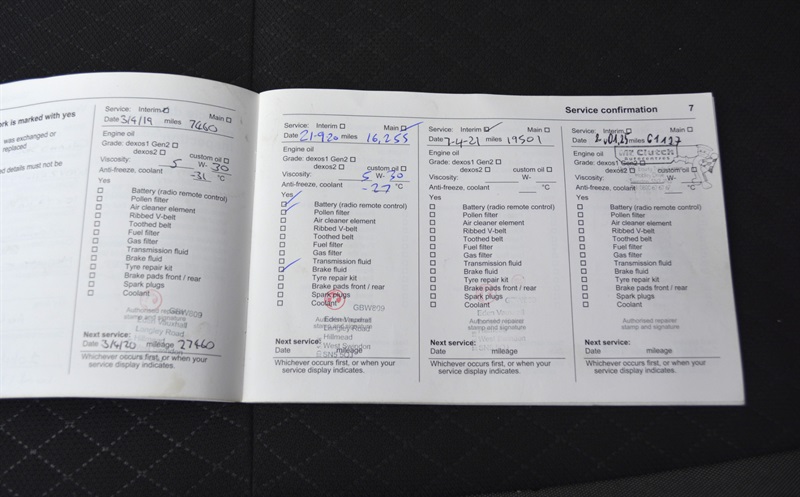 rk is marked with yes
was exchanged or
replaced
d details must not
be
Service: Interim Main
Date 3/4/19 miles 7460
Engine oil
Grade: dexos1 Gen2 custom oil
dexos2
Viscosity: 5 W- 30
Anti-freeze, coolant -31 °C
Yes
Battery (radio remote control)
Pollen filter
Air cleaner element
Ribbed V-belt
Toothed belt
Fuel filter
Gas filter
Transmission fluid
Brake fluid
Tyre repair kit
Brake pads front / rear
Spark plugs
Coolant
GBW809
Authorised repairer
stamp and signature
Langley Road
Next service:
Date 3/4/20 mileage 27460
Whichever occurs first, or when your
service display indicates.
Service confirmation 7
Service: Interim Main
Date 21-9-20 miles 16,255
Engine oil
Grade: dexos1 Gen2 custom oil
dexos2
Viscosity: 5 W- 30
Anti-freeze, coolant -27 °C
Yes
Battery (radio remote control)
Pollen filter
Air cleaner element
Ribbed V-belt
Toothed belt
Fuel filter
Gas filter
Transmission fluid
Brake fluid
Tyre repair kit
Brake pads front / rear
Spark plugs
Coolant
GBW809
Eden Vauxhall
Authorised repairer
stamp and signature
Langley Road
Hillmead
West Swindon
Next service:
Date mileage
Whichever occurs first, or when your
service display indicates.
Service: Interim Main
Date 7-4-21 miles 19501
Engine oil
Grade: dexos1 Gen2 custom oil
dexos2
Viscosity: W-
Anti-freeze, coolant °C
Yes
Battery (radio remote control)
Pollen filter
Air cleaner element
Ribbed V-belt
Toothed belt
Fuel filter
Gas filter
Transmission fluid
Brake fluid
Tyre repair kit
Brake pads front / rear
Spark plugs
Coolant
Eden Vauxhall
Authorised repairer
stamp and signature
Next service:
Date mileage
Whichever occurs first, or when your
service display indicates.
Service: Interim Main
Date miles 61127
Engine oil
Mr Clutch
AUTOCENTRES
Grade: dexos1 Gen2 custom oil
dexos2
Viscosity: W-
Anti-freeze, coolant °C
Yes
Battery (radio remote control)
Pollen filter
Air cleaner element
Ribbed V-belt
Toothed belt
Fuel filter
Gas filter
Transmission fluid
Brake fluid
Tyre repair kit
Brake pads front / rear
Spark plugs
Coolant
Authorised repairer
stamp and signature
Next service:
Date mileage
Whichever occurs first, or when your
service display indicates.